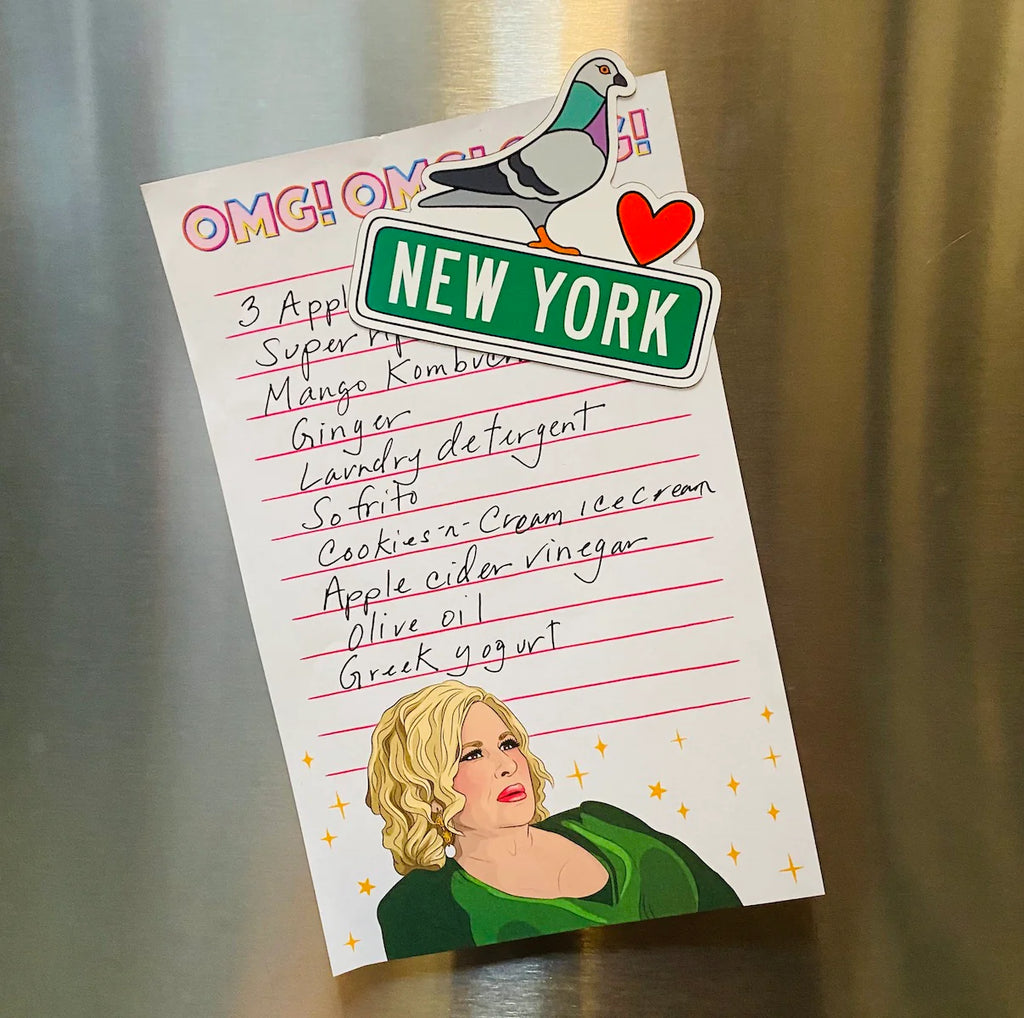 OMG! OMG!
NEW YORK
3
Super
Mango
Ginger
Laundry detergent
Sofrito
Cookies-n-Cream ice cream
Apple cider vinegar
Olive oil
Greek yogurt